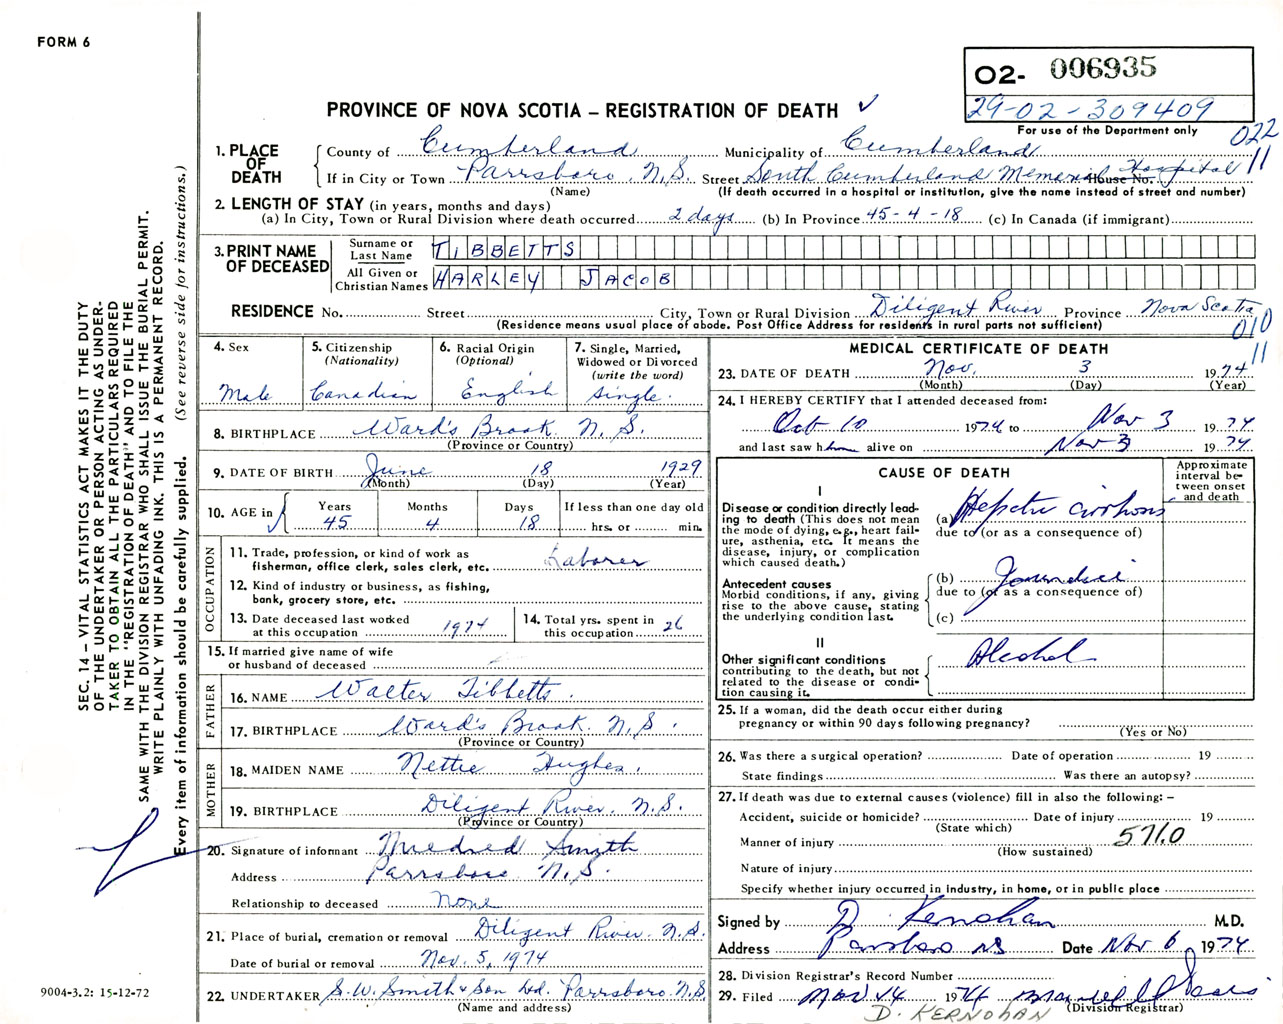 FORM 6
O2- 006935
29-02-309409
For use of the Department only
022
11
PROVINCE OF NOVA SCOTIA – REGISTRATION OF DEATH ✓
1. PLACE OF DEATH
County of Cumberland Municipality of Cumberland
If in City or Town Parrsboro N.S. Street South Cumberland Memorial Hospital House No.
(Name) (If death occurred in a hospital or institution, give the name instead of street and number)
2. LENGTH OF STAY (in years, months and days)
(a) In City, Town or Rural Division where death occurred 2 days (b) In Province 45-4-18 (c) In Canada (if immigrant)
3. PRINT NAME OF DECEASED
Surname or Last Name TIBBETTS
All Given or Christian Names HARLEY JACOB
RESIDENCE No. Street City, Town or Rural Division Diligent River Province Nova Scotia
(Residence means usual place of abode. Post Office Address for residents in rural parts not sufficient)
010
11
4. Sex
Male
5. Citizenship
(Nationality)
Canadian
6. Racial Origin
(Optional)
English
7. Single, Married, Widowed or Divorced
(write the word)
Single.
8. BIRTHPLACE Ward's Brook N.S.
(Province or Country)
9. DATE OF BIRTH June 18 1929
(Month) (Day) (Year)
10. AGE in
Years Months Days If less than one day old
45 4 18 hrs. or min.
OCCUPATION
11. Trade, profession, or kind of work as
fisherman, office clerk, sales clerk, etc. Laborer
12. Kind of industry or business, as fishing,
bank, grocery store, etc.
13. Date deceased last worked
at this occupation 1974
14. Total yrs. spent in
this occupation 26
15. If married give name of wife
or husband of deceased
FATHER
16. NAME Walter Tibbetts.
17. BIRTHPLACE Ward's Brook. N.S.
(Province or Country)
MOTHER
18. MAIDEN NAME Nettie Hughes.
19. BIRTHPLACE Diligent River. N.S.
(Province or Country)
20. Signature of informant Mildred Smith
Address Parrsboro N.S.
Relationship to deceased None
21. Place of burial, cremation or removal Diligent River. N.S.
Date of burial or removal Nov. 5, 1974
22. UNDERTAKER S.W. Smith & Son Ltd. Parrsboro. N.S.
(Name and address)
MEDICAL CERTIFICATE OF DEATH
23. DATE OF DEATH Nov. 3 1974
(Month) (Day) (Year)
24. I HEREBY CERTIFY that I attended deceased from:
Oct 10 1974 to Nov 3 1974
and last saw him alive on Nov 3 1974
CAUSE OF DEATH
Approximate interval between onset and death
I
Disease or condition directly leading to death (This does not mean the mode of dying, e.g., heart failure, asthenia, etc. It means the disease, injury, or complication which caused death.)
(a) Hepatic cirrhosis
due to (or as a consequence of)
Antecedent causes
Morbid conditions, if any, giving rise to the above cause, stating the underlying condition last.
(b) Jaundice
due to (or as a consequence of)
(c)
II
Other significant conditions contributing to the death, but not related to the disease or condition causing it.
Alcohol
25. If a woman, did the death occur either during
pregnancy or within 90 days following pregnancy?
(Yes or No)
26. Was there a surgical operation? Date of operation 19
State findings Was there an autopsy?
27. If death was due to external causes (violence) fill in also the following: –
Accident, suicide or homicide? Date of injury 19
(State which)
Manner of injury 571.0
(How sustained)
Nature of injury
Specify whether injury occurred in industry, in home, or in public place
Signed by D. Kernohan M.D.
Address Parrsboro NS Date Nov 6 1974
28. Division Registrar's Record Number
29. Filed Nov 14 1974
(Division Registrar)
D. KERNOHAN
SEC. 14 – VITAL STATISTICS ACT MAKES IT THE DUTY
OF THE UNDERTAKER OR PERSON ACTING AS UNDER-
TAKER TO OBTAIN ALL THE PARTICULARS REQUIRED
IN THE "REGISTRATION OF DEATH" AND TO FILE THE
SAME WITH THE DIVISION REGISTRAR WHO SHALL ISSUE THE BURIAL PERMIT.
WRITE PLAINLY WITH UNFADING INK. THIS IS A PERMANENT RECORD.
Every item of information should be carefully supplied. (See reverse side for instructions.)
9004-3.2: 15-12-72